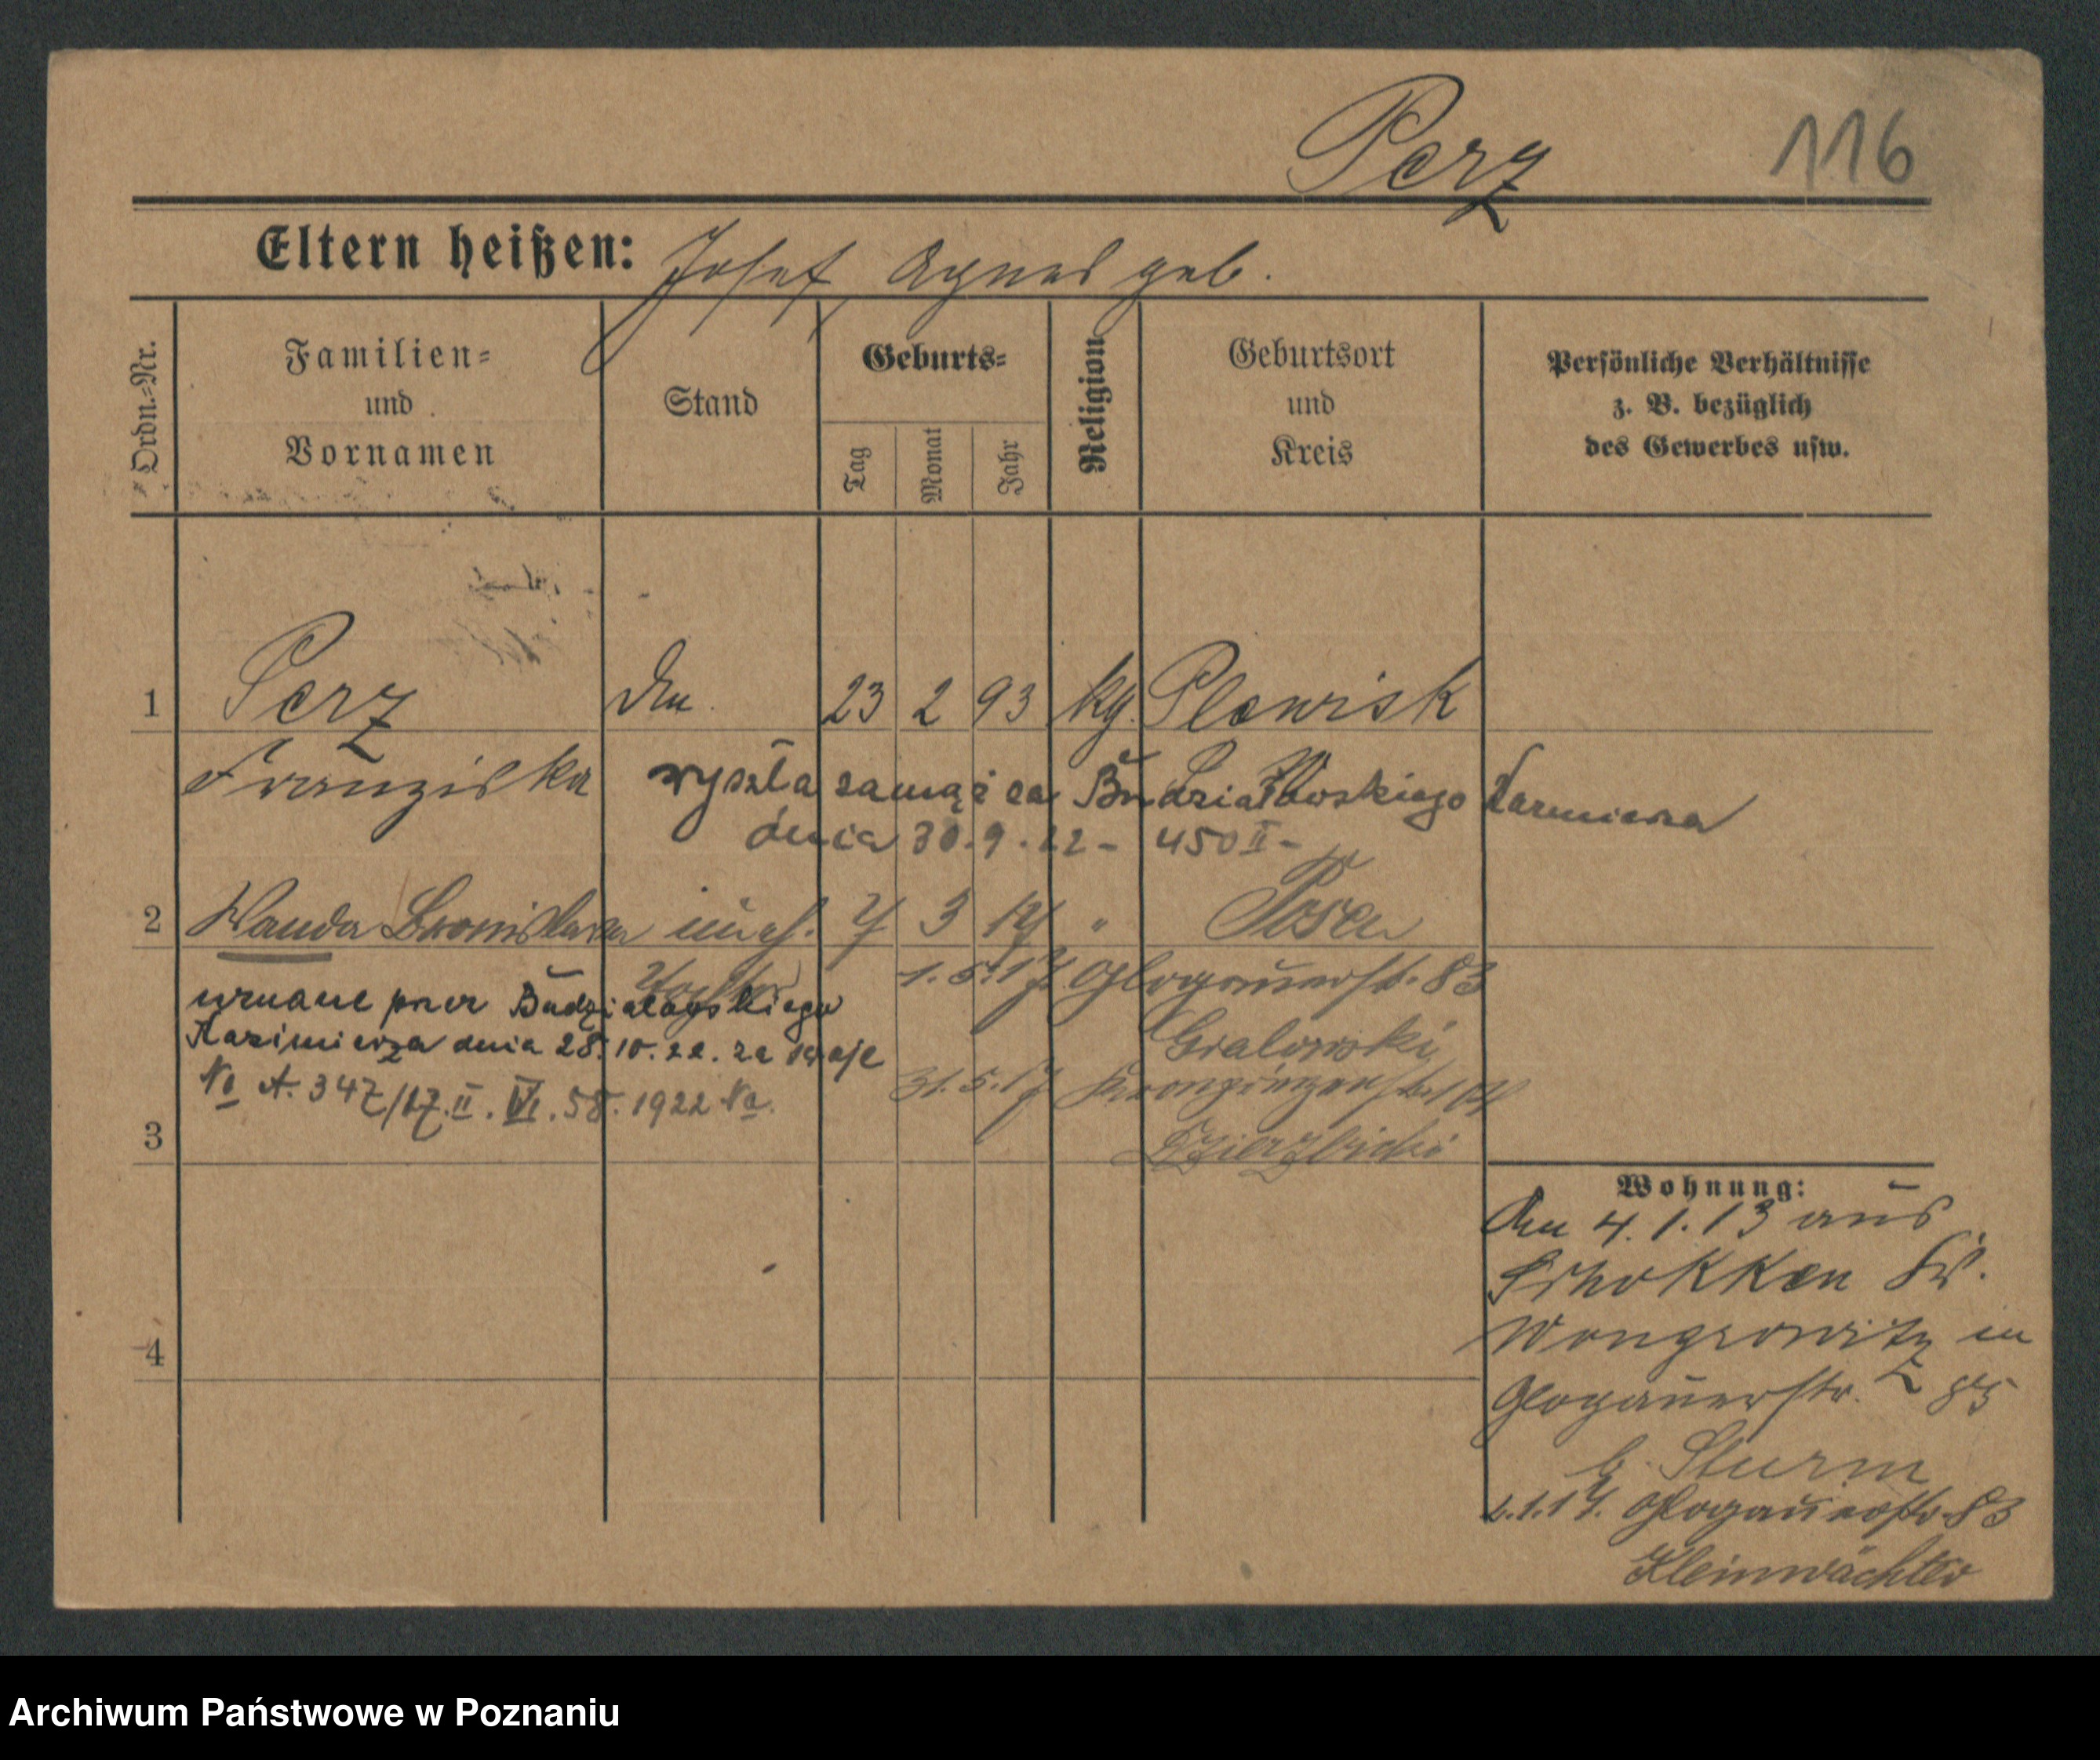 Perz 116
Eltern heißen: Josef, Agnes geb.
Ordn.=Nr.
Familien=
und
Vornamen
Stand
Geburts=
Tag
Monat
Jahr
Religion
Geburtsort
und
Kreis
Persönliche Verhältnisse
z. B. bezüglich
des Gewerbes usw.
1 Perz 23 2 93 Plewisk
Franziska wyszła zamąż za Budziałowskiego
dnia 30.9.22 - 450 II -
2 Wanda Bronislawa 7 3 17 " Posen
Tochter 1.5.17. Glogauerstr. 83
uznane przez Budziałowskiego
Gralowski
Kazimierza dnia 28.10.22. za swoje
31.5.17 Kronprinzenstr.
No A. 347/17. II. VI. 58. 1922
3
Wohnung:
4.1.13 aus
Schokken Kr.
Wongrowitz in
4
Glogauerstr. 85
b. Sturm
1.17. Glogauerstr. 83
Kleinwächter
Archiwum Państwowe w Poznaniu